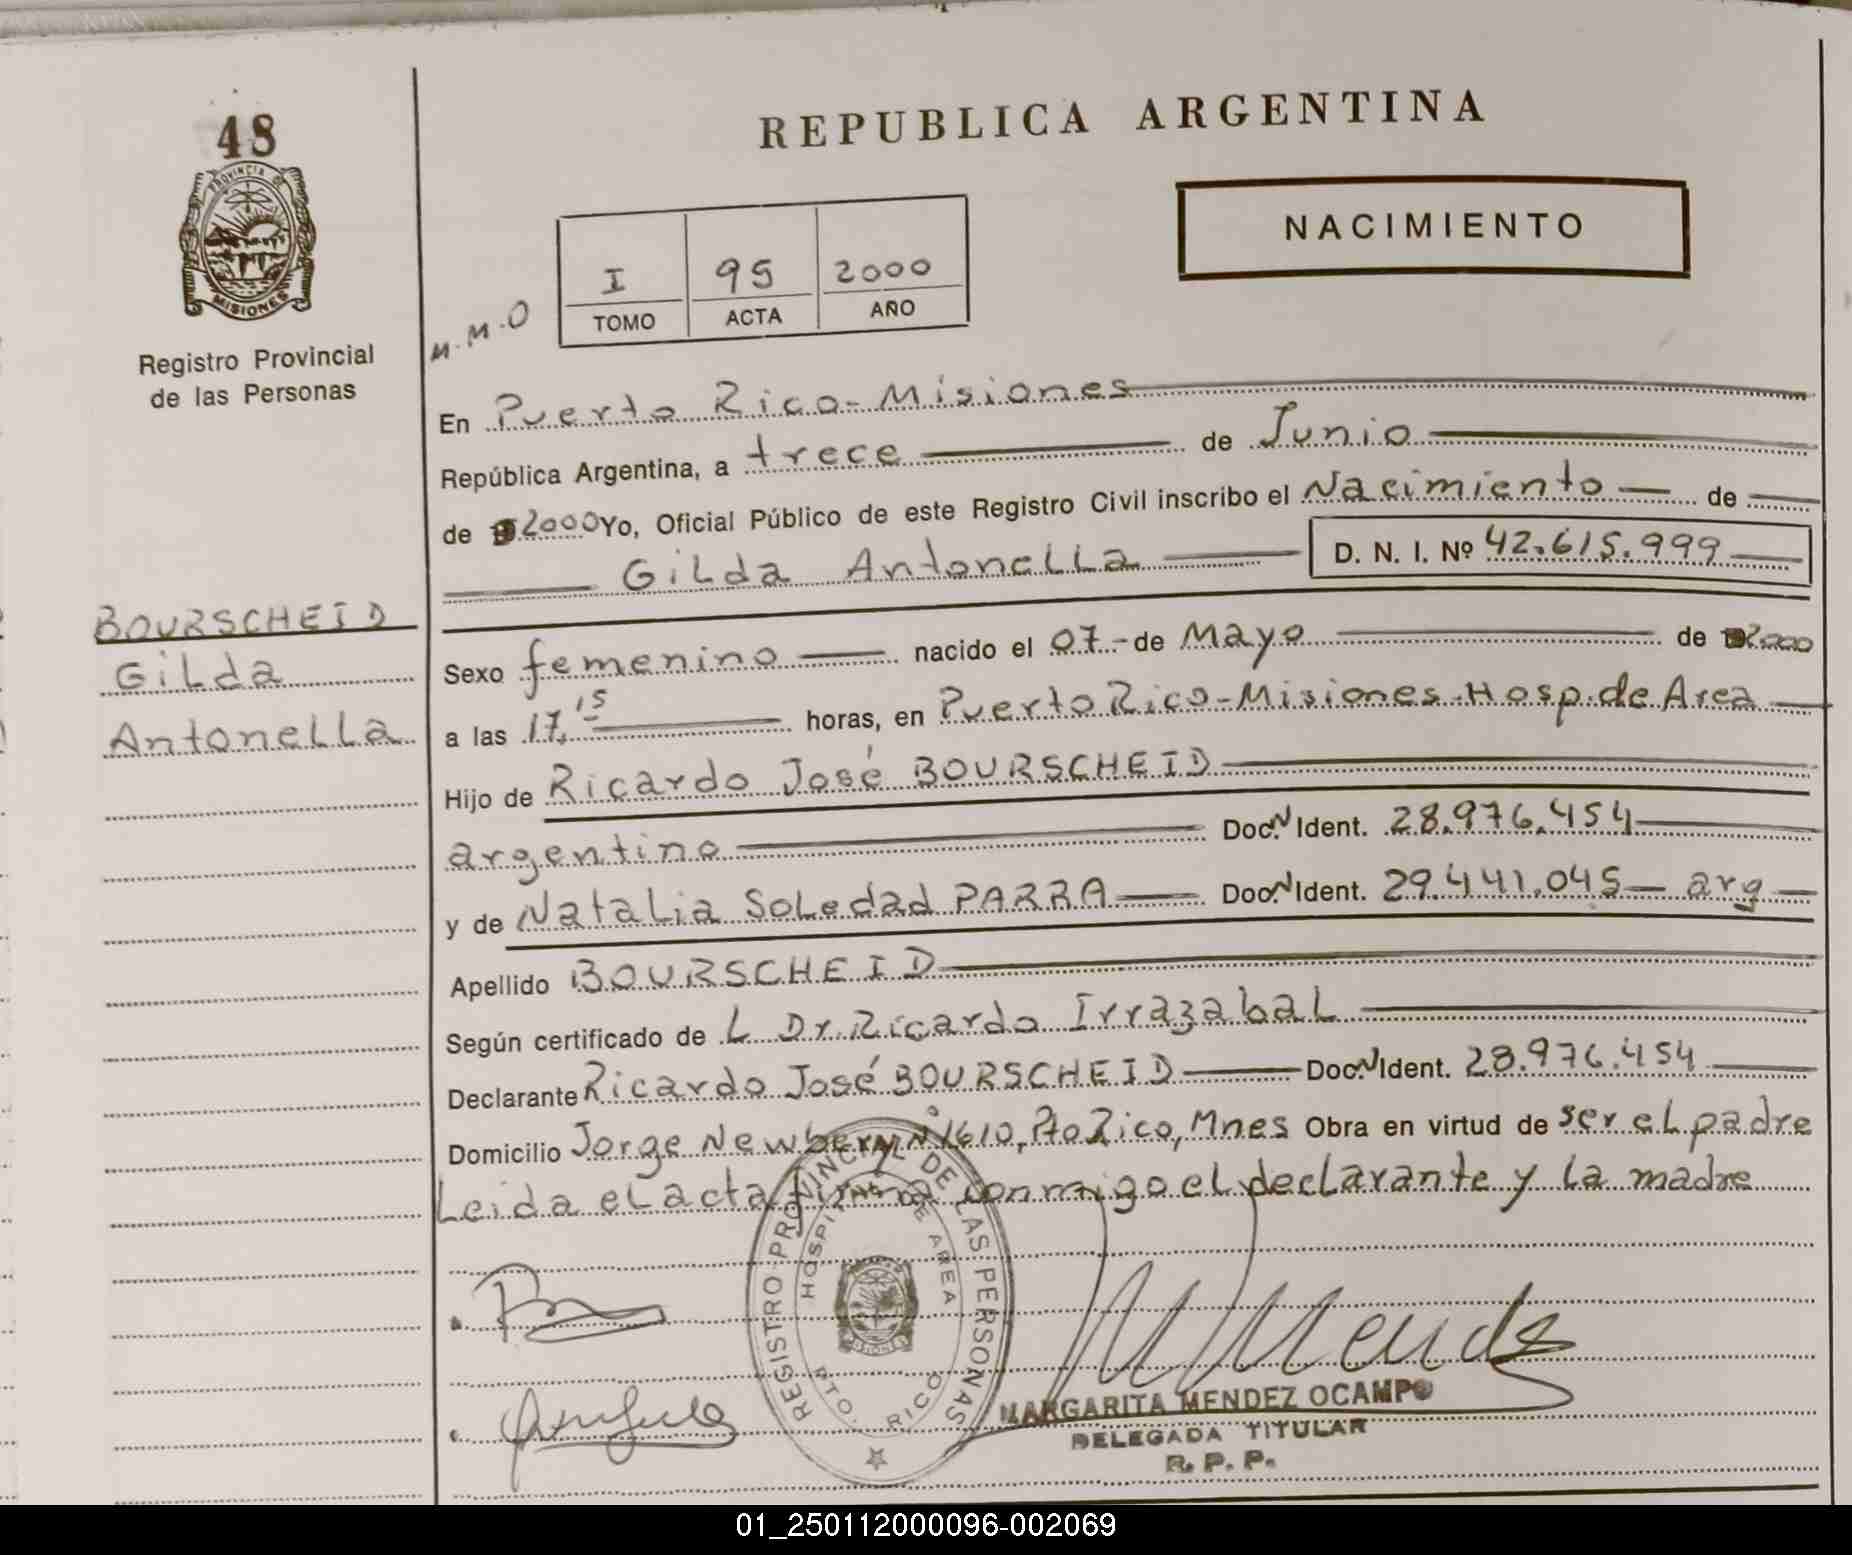 48
PROVINCIA DE
MISIONES
Registro Provincial
de las Personas
BOURSCHEID
Gilda
Antonella
REPUBLICA ARGENTINA
NACIMIENTO
I 95 2000
TOMO ACTA AÑO
M.M.O
En Puerto Rico-Misiones
República Argentina, a trece de Junio
de 2000 Yo, Oficial Público de este Registro Civil inscribo el Nacimiento de
Gilda Antonella D. N. I. Nº 42.615.999
Sexo femenino nacido el 07-de Mayo de 2000
a las 17,15 horas, en Puerto Rico-Misiones-Hosp.de Area
Hijo de Ricardo José BOURSCHEID
argentino Doc. N Ident. 28.976.454
y de Natalia Soledad PARRA Doc. N Ident. 29.441.045 arg
Apellido BOURSCHEID
Según certificado de L Dr. Ricardo Irrazabal
Declarante Ricardo José BOURSCHEID Doc. N Ident. 28.976.454
Domicilio Jorge Newbery Nº1610, Pto Rico, Mnes Obra en virtud de ser el padre
Leida el acta firma conmigo el declarante y la madre
REGISTRO PROVINCIAL DE LAS PERSONAS
HOSPITAL DE AREA
PTO. RICO
MISIONES
M Mendz
MARGARITA MENDEZ OCAMPO
DELEGADA TITULAR
R. P. P.
01_250112000096-002069